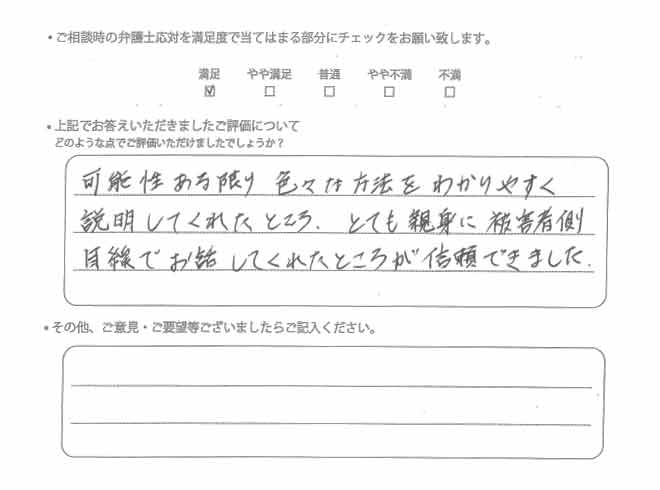 ・ご相談時の弁護士応対を満足度で当てはまる部分にチェックをお願い致します。
満足 やや満足 普通 やや不満 不満
☑ □ □ □ □
・上記でお答えいただきましたご評価について
どのような点でご評価いただけましたでしょうか？
可能性ある限り色々な方法をわかりやすく
説明してくれたところ．とても親身に被害者側
目線でお話してくれたところが信頼できました．
・その他、ご意見・ご要望等ございましたらご記入ください。